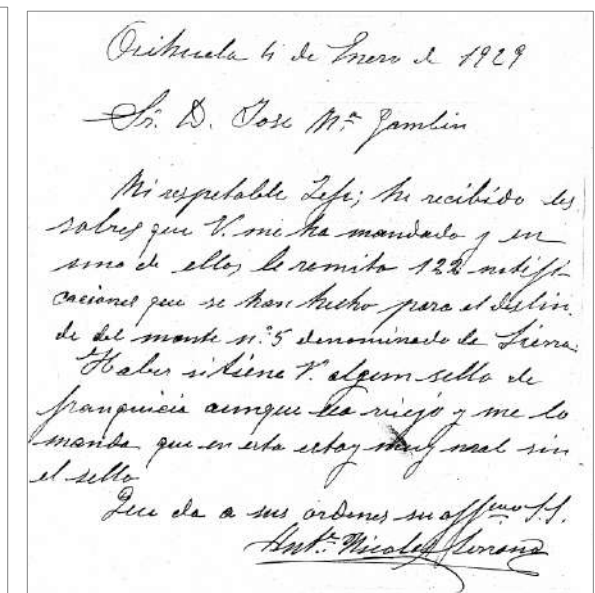 Orihuela 4 de Enero de 1929
Sr. D. Jose Mª Gambin
Mi respetable Jefe; he recibido los
sobres que V. me ha mandado y en
uno de ellos le remito 122 notifi-
caciones que se han hecho para el deslin-
de del monte n.º 5 denominado de Sierra.
Haber si tiene V. algun sello de
franquicia aunque sea viejo y me lo
manda que en esta estoy muy mal sin
el sello
Queda a sus ordenes su affmo S.S.
Antº Nicolas Serrano